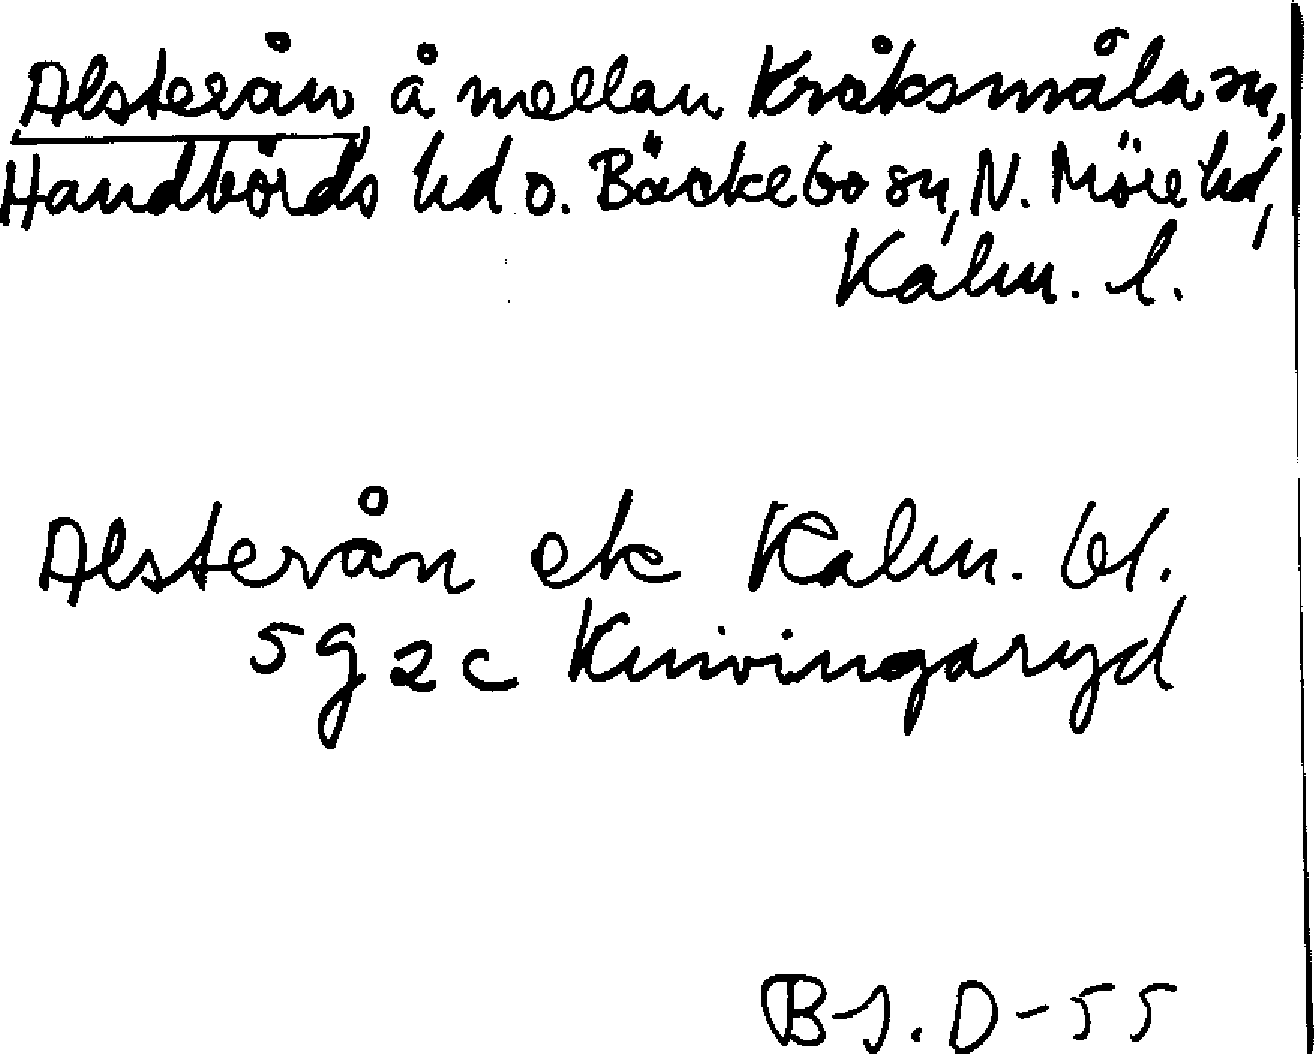 Alsterån å mellan Kråksmåla sn,
Handbörds hd o. Bäckebo sn, N. Möre hd,
Kalm. l.
Alsterån ek Kalm. bl.
5 g 2 c Knivingaryd
B-J. D-55